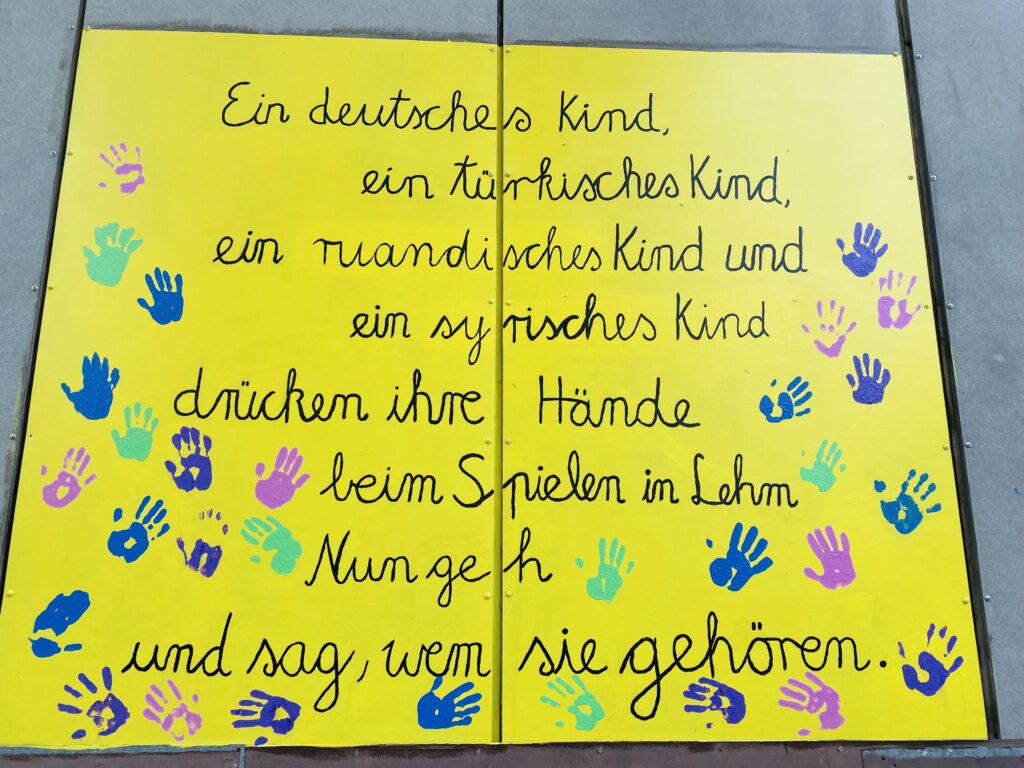 Ein deutsches Kind,
ein türkisches Kind,
ein ruandisches Kind und
ein syrisches Kind
drücken ihre Hände
beim Spielen in Lehm
Nun geh
und sag, wem sie gehören.